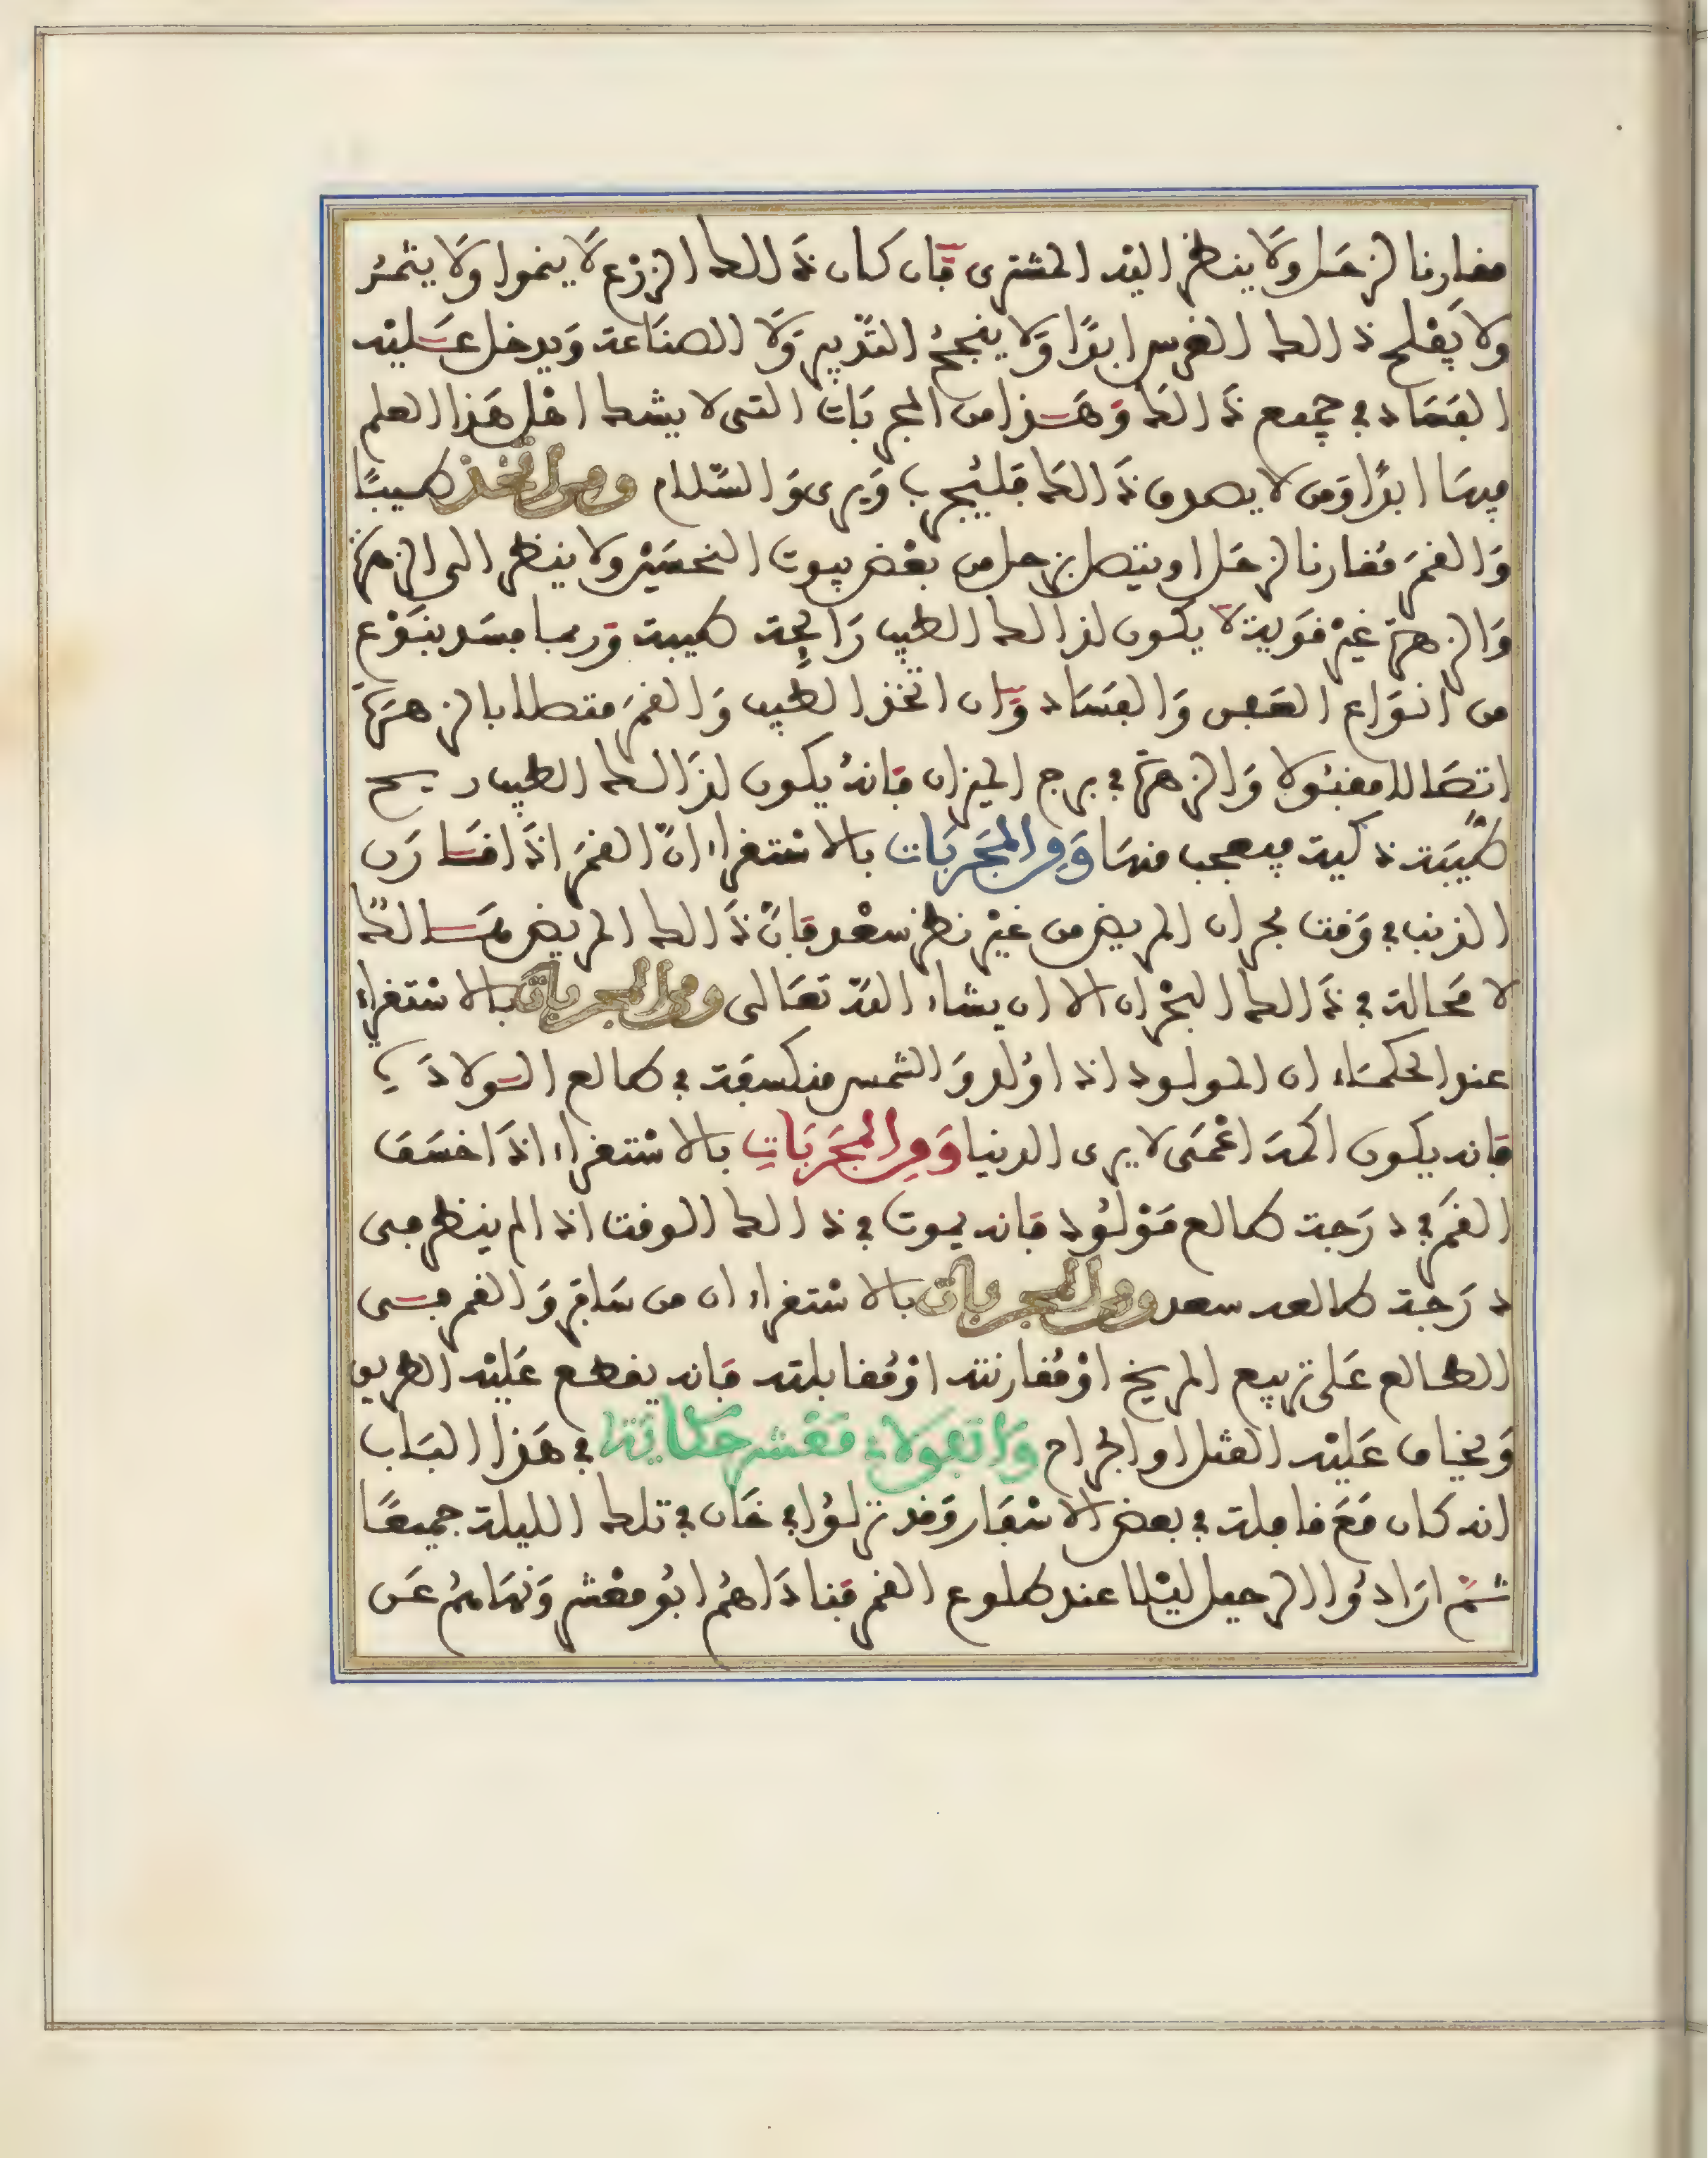 مقارنا لزحل ولا ينظر اليه المشترى فان كان ذالك الزرع لا ينموا ولا يثمر
ولا يفلح ذالك الغرس ابدًا ولا ينجح التدبير ولا الصناعة ويدخل عليه
الفساد في جميع ذالك وهذا من المجربات التى لا يشك اهل هذا العلم
فيها ابدًا ومن لا يصدق ذالك فليجرب ويرى والسلام ومن اتخذ طيبًا
والقمر مقارنا لزحل او يتصل بزحل من بعض بيوت النحسين ولا ينظر الى الزهرة
والزهرة غير قوية لا يكون لذالك الطيب رائحة طيبة وربما فسد بنوع
من انواع العفن والفساد وان اتخذ الطيب والقمر متصلا بالزهرة
اتصالا مقبولا والزهرة في برج الميزان فانه يكون لذالك الطيب ريح
طيبة ذكية يعجب منها ومن المجربات بالاستقراء ان القمر اذا قارن
الذنب في وقت بحران المريض من غير نظر سعد فان ذالك المريض هالك
لا محالة في ذالك البحران الا ان يشاء الله تعالى ومن المجربات بالاستقراء
عند الحكماء ان المولود اذا ولد والشمس منكسفة في طالع الولادة
فانه يكون اكمه اعمى لا يرى الدنيا ومن المجربات بالاستقراء اذا خسف
القمر في درجة طالع مولود فانه يموت في ذالك الوقت اذا لم ينظر فى
درجة طالعه سعد ومن المجربات بالاستقراء ان من سافر والقمر فى
الطالع على تربيع المريخ او مقارنته او مقابلته فانه يقطع عليه الطريق
ويخاف عليه القتل او الجراح واتفق لابي معشر حكاية في هذا الباب
انه كان مع قافلة في بعض الاسفار وقد نزلوا في خان في تلك الليلة جميعًا
ثم ارادوا الرحيل ليلا عند طلوع القمر فناداهم ابو معشر ونهاهم عن